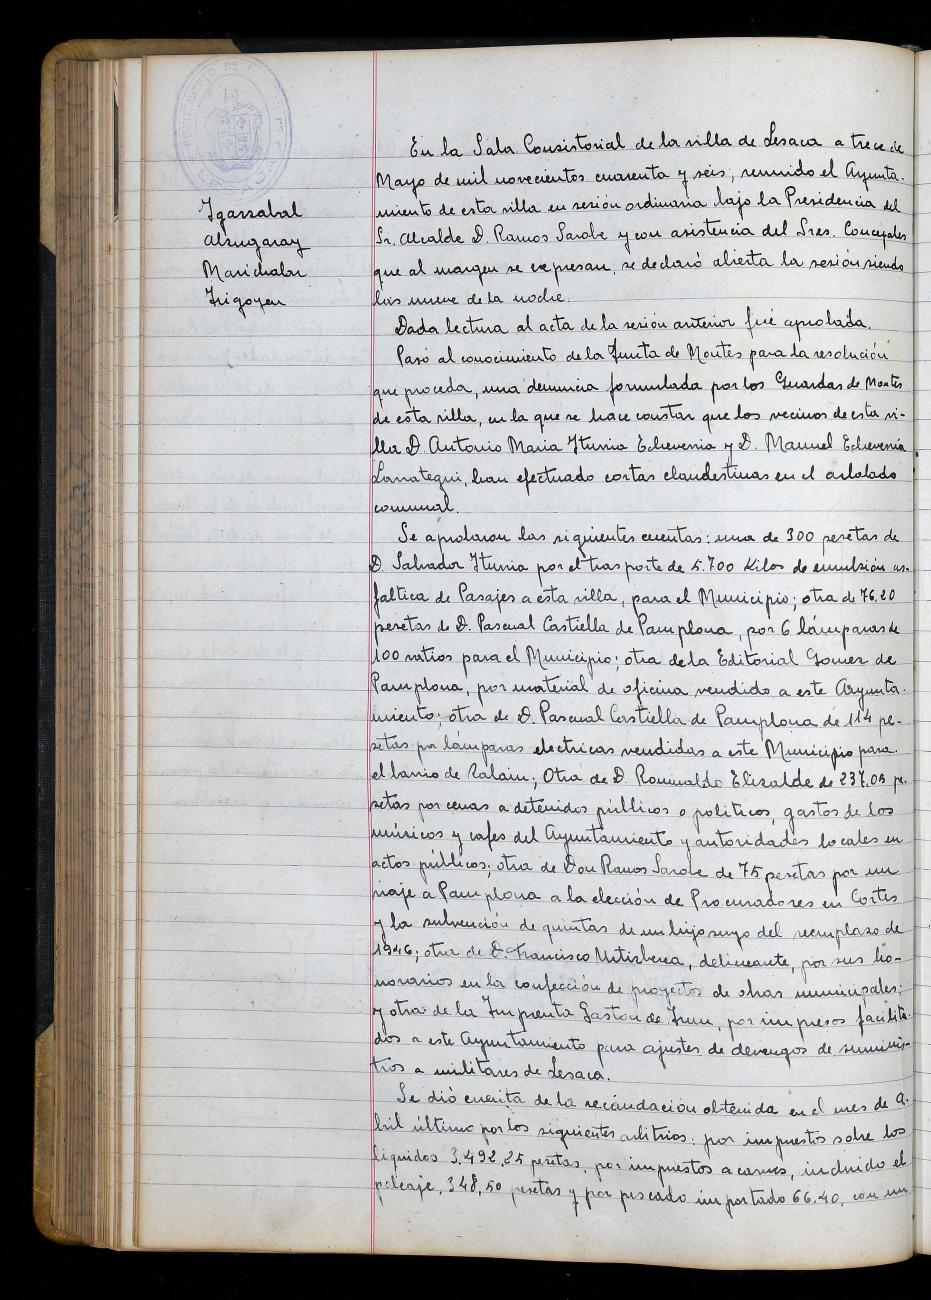 AYUNTAMIENTO DE
LESACA
Igarzabal
Alzugaray
Marichalar
Irigoyen
En la Sala Consistorial de la villa de Lesaca a trece de
Mayo de mil novecientos cuarenta y seis, reunido el Ayunta-
miento de esta villa en sesión ordinaria bajo la Presidencia del
Sr. Alcalde D. Ramos Sarobe y con asistencia del Sres. Concejales
que al margen se expresan, se declaró abierta la sesión siendo
las nueve de la noche.
Dada lectura al acta de la sesión anterior fué aprobada.
Pasó al conocimiento de la Junta de Montes para la resolución
que proceda, una denuncia formulada por los Guardas de Montes
de esta villa, en la que se hace constar que los vecinos de esta vi-
lla D. Antonio Maria Iturria Echeverria y D. Manuel Echeverria
Larrategui, han efectuado cortas clandestinas en el arbolado
comunal.
Se aprobaron las siguientes cuentas: una de 300 pesetas de
D. Salvador Iturria por el trasporte de 5.700 Kilos de emulsión as-
faltica de Pasajes a esta villa, para el Municipio; otra de 76.20
pesetas de D. Pascual Castiella de Pamplona, por 6 lámparas de
100 vatios para el Municipio; otra de la Editorial Gomez de
Pamplona, por material de oficina vendido a este Ayunta-
miento; otra de D. Pascual Castiella de Pamplona de 114 pe-
setas por lámparas electricas vendidas a este Municipio para
el barrio de Zalain; Otra de D. Romualdo Elizalde de 237.05 pe-
setas por cenas a detenidos públicos o politicos, gastos de los
músicos y cafes del Ayuntamiento y autoridades locales en
actos públicos; otra de Don Ramos Sarobe de 75 pesetas por un
viaje a Pamplona a la elección de Procuradores en Cortes
y la subvención de quintas de un hijo suyo del reemplazo de
1946; otra de D. Francisco Urtizberea, delineante, por sus ho-
norarios en la confección de proyectos de obras municipales;
y otra de la Imprenta Gaston de Irun, por impresos facilita-
dos a este Ayuntamiento para ajustes de devengos de suminis-
tros a militares de Lesaca.
Se dió cuenta de la recaudación obtenida en el mes de A-
bril último por los siguientes arbitrios: por impuestos sobre los
liquidos 3.492,25 pesetas, por impuestos a carnes, incluido el
poleaje, 348,50 pesetas y por pescado importado 66.40, con un